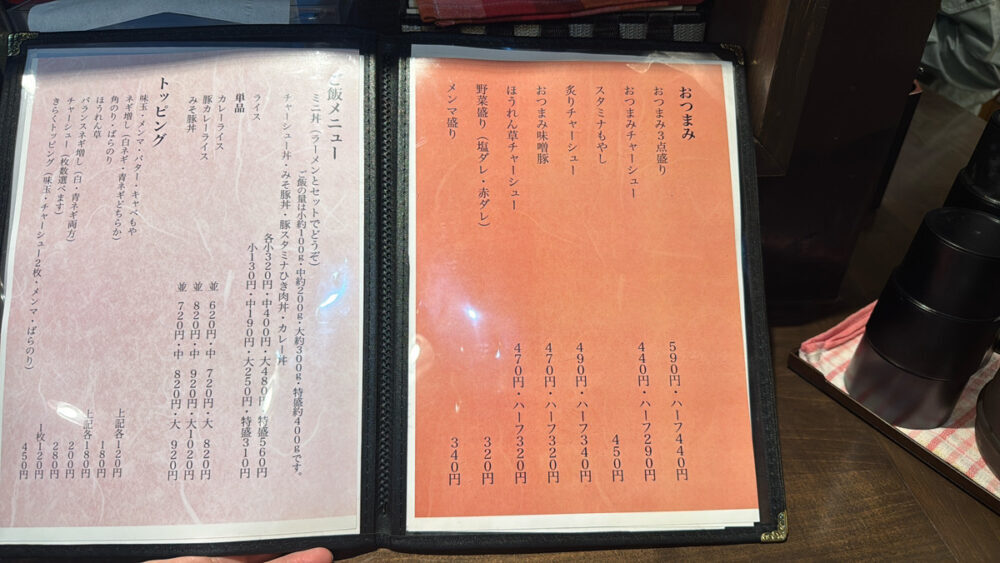 おつまみ
おつまみ3点盛り 590円・ハーフ440円
おつまみチャーシュー 440円・ハーフ290円
スタミナもやし 450円
炙りチャーシュー 490円・ハーフ340円
おつまみ味噌豚 470円・ハーフ320円
ほうれん草チャーシュー 470円・ハーフ320円
野菜盛り(塩ダレ・赤ダレ) 320円
メンマ盛り 340円
ご飯メニュー
ミニ丼(ラーメンとセットでどうぞ)
ご飯の量は小約100g・中約200g・大約300g・特盛約400gです。
チャーシュー丼・みそ豚丼・豚スタミナひき肉丼・カレー丼
各小320円・中400円・大480円・特盛560円
ライス 小130円・中190円・大250円・特盛310円
単品
カレーライス 並 620円・中 720円・大 820円
豚カレーライス 並 820円・中 920円・大1020円
みそ豚丼 並 720円・中 820円・大 920円
トッピング
味玉・メンマ・バター・キャベもや 上記各120円
ネギ増し(白ネギ・青ネギどちらか) 180円
角のり・ばらのり 上記各180円
ほうれん草 200円
バランスネギ増し(白・青ネギ両方) 280円
チャーシュー(枚数選べます) 1枚120円
きらくトッピング(味玉・チャーシュー2枚・メンマ・ばらのり) 450円